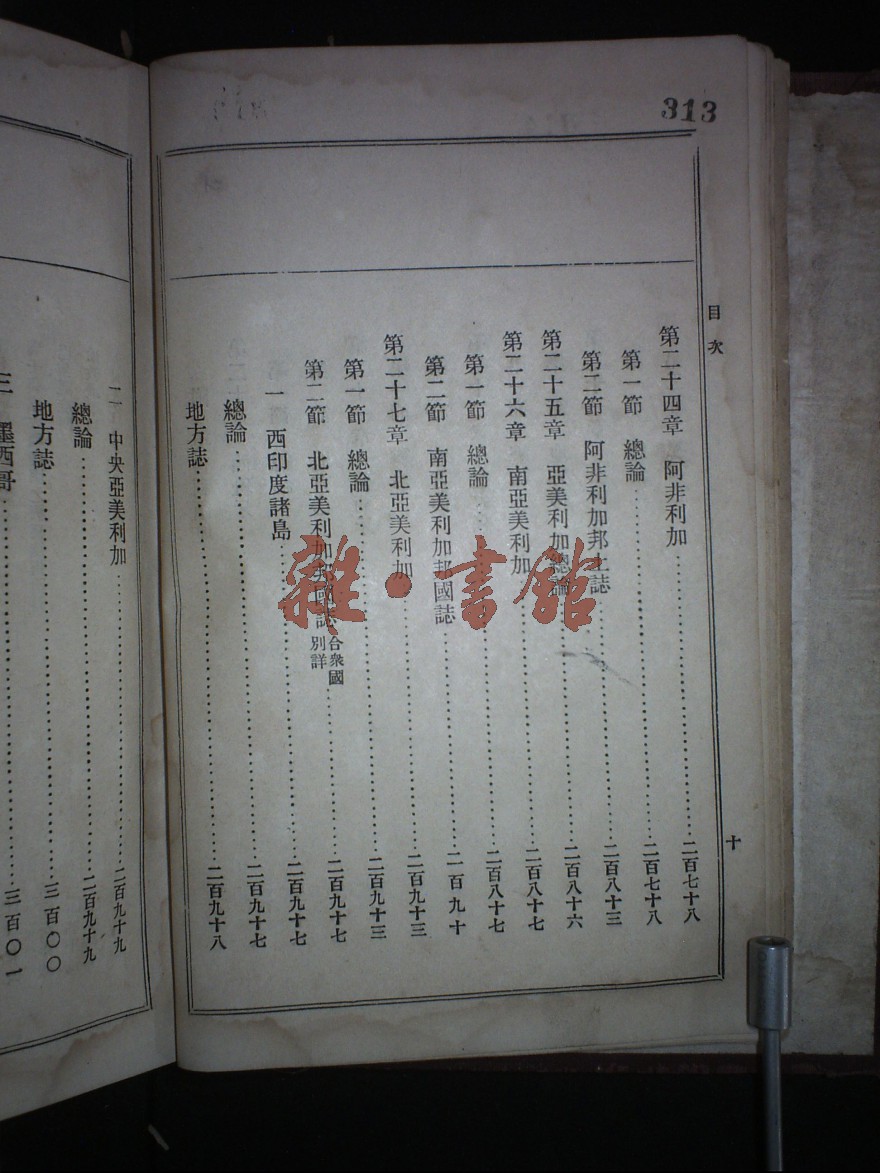 313
目次
第二十四章 阿非利加……二百七十八
第一節 總論……二百七十八
第二節 阿非利加邦土誌……二百八十三
第二十五章 亞美利加總論……二百八十六
第二十六章 南亞美利加……二百八十七
第一節 總論……二百八十七
第二節 南亞美利加邦國誌……二百九十
第二十七章 北亞美利加……二百九十三
第一節 總論……二百九十三
第二節 北亞美利加邦國誌 合衆國別詳……二百九十七
一 西印度諸島……二百九十七
總論……二百九十七
地方誌……二百九十八
十
二 中央亞美利加……二百九十九
總論……二百九十九
地方誌……三百〇〇
三 墨西哥……三百〇一
雜·書館